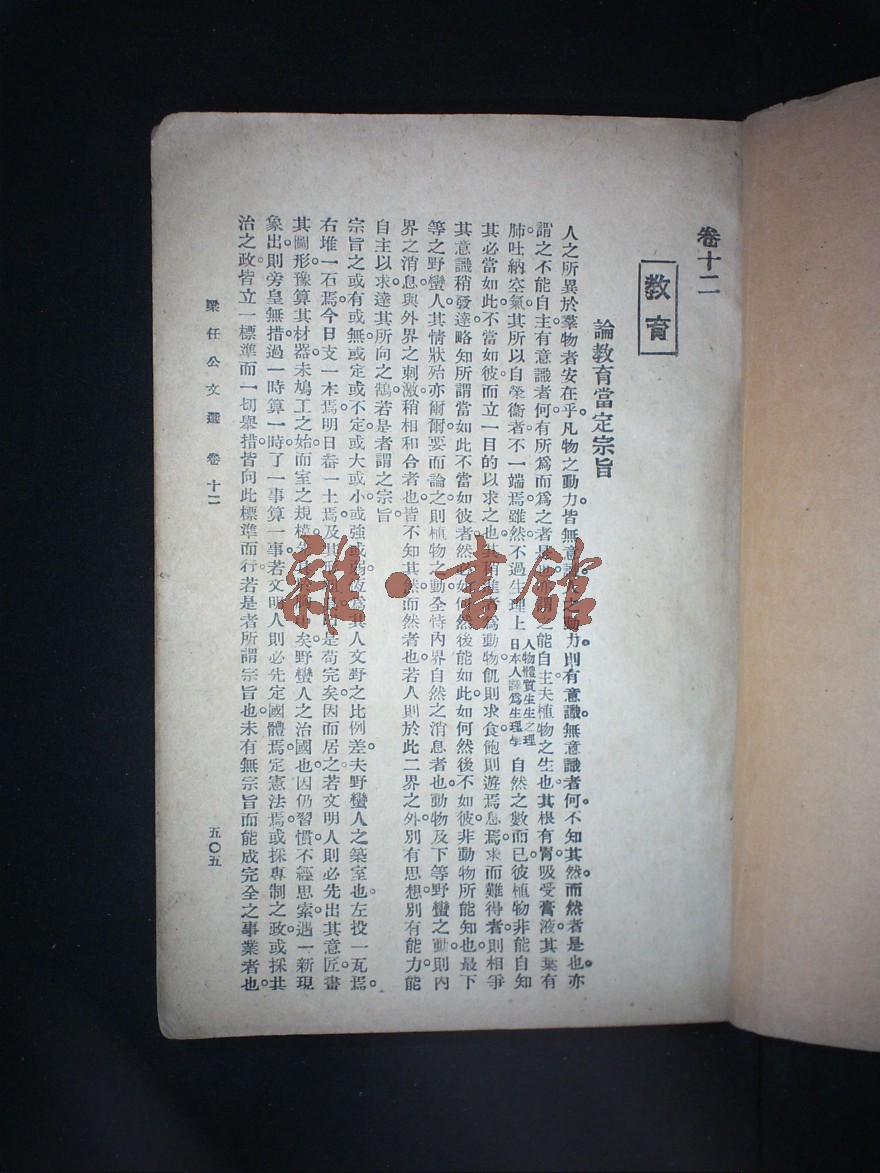 卷十二
教育
論教育當定宗旨
人之所異於羣物者安在乎凡物之動力皆無意識人之動力則有意識無意識者何不知其然而然者是也亦
謂之不能自主有意識者何有所爲而爲之者是也亦謂之能自主夫植物之生也其根有胃吸受膏液其葉有
肺吐納空氣其所以自榮衞者不一端焉雖然不過生理上人物體質生生之理日本人譯爲生理學自然之數而已彼植物非能自知
其必當如此不當如彼而立一目的以求之也其稍進者爲動物飢則求食飽則遊焉息焉求而難得者則相爭
其意識稍發達略知所謂當如此不當如彼者然如何然後能如此如何然後不如彼非動物所能知也最下
等之野蠻人其情狀殆亦爾爾要而論之則植物之動全恃內界自然之消息者也動物及下等野蠻之動則內
界之消息與外界之刺激稍相和合者也皆不知其然而然者也若人則於此二界之外別有思想別有能力能
自主以求達其所向之鵠若是者謂之宗旨
宗旨之或有或無或定或不定或大或小或強或弱恆爲其人文野之比例差夫野蠻人之築室也左投一瓦焉
右堆一石焉今日支一木焉明日畚一土焉及其是苟完矣因而居之若文明人則必先出其意匠畫
其圖形豫算其材器未鳩工之始而室之規模矣野蠻人之治國也因仍習慣不經思索遇一新現
象出則旁皇無措過一時算一時了一事算一事若文明人則必先定國體焉定憲法焉或採專制之政或採共
治之政皆立一標準而一切舉措皆向此標準而行若是者所謂宗旨也未有無宗旨而能成完全之事業者也
梁任公文選 卷十二
五〇五
雜·書館